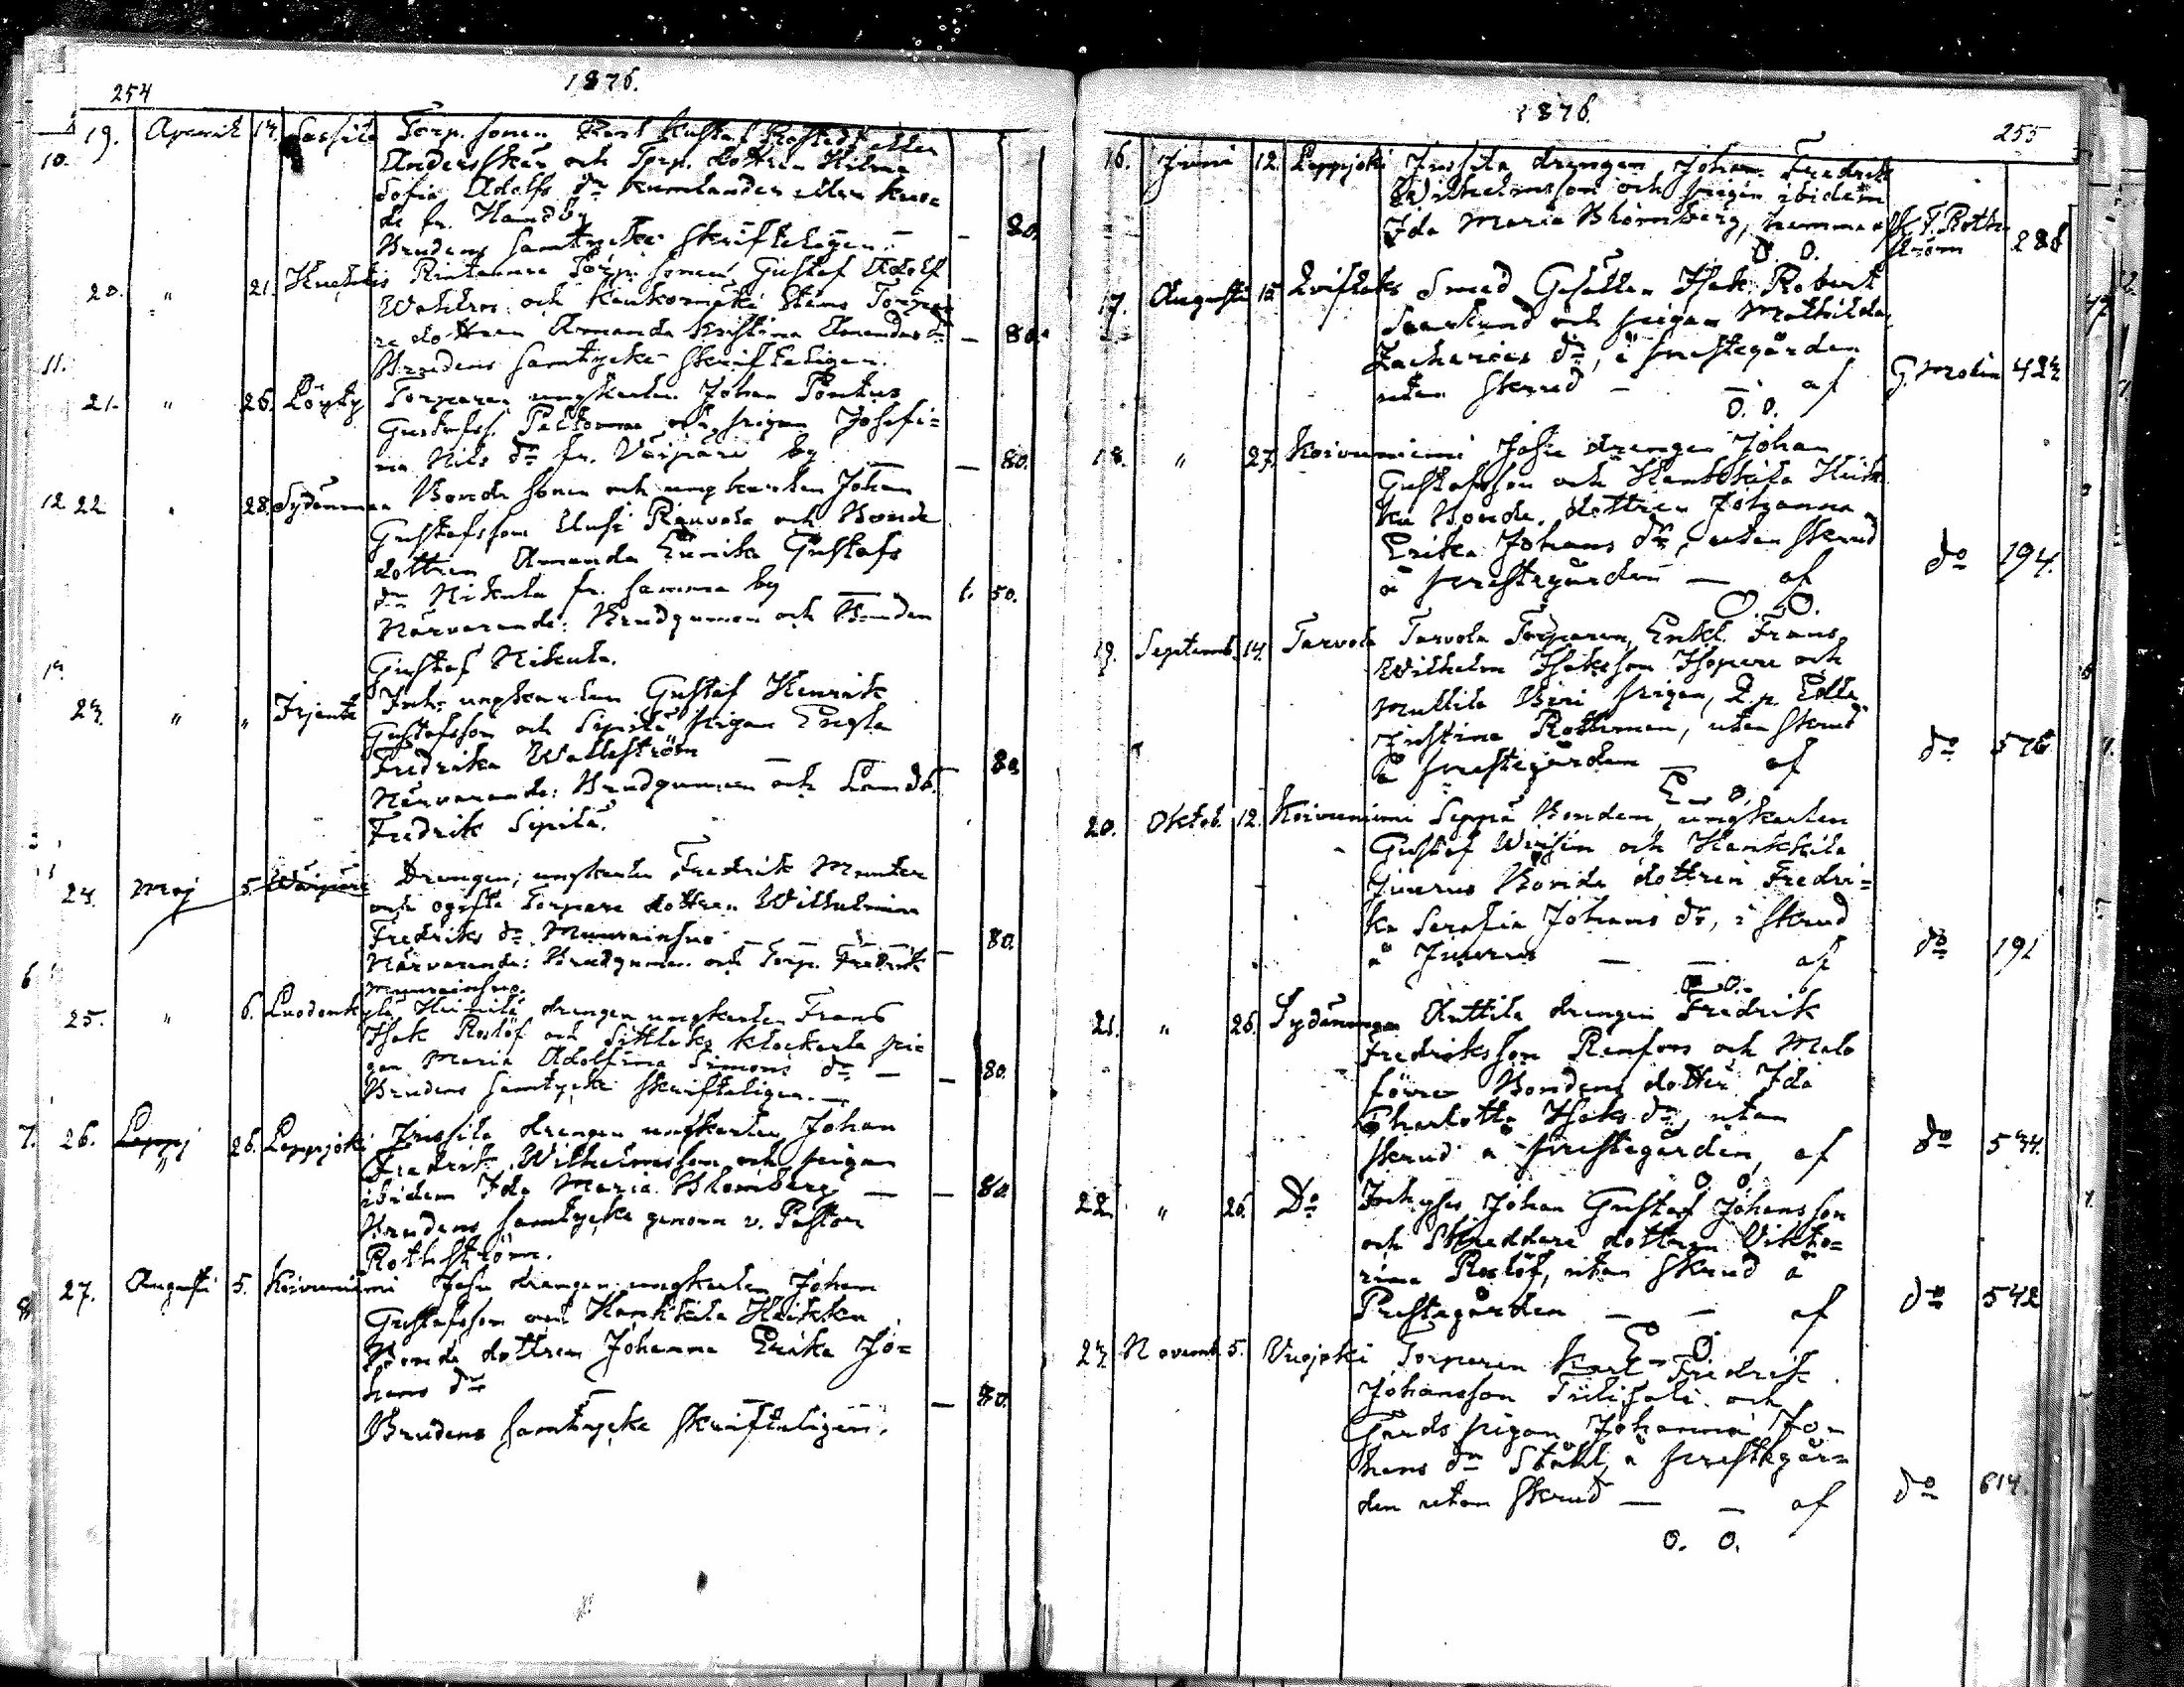 254
1876.
19. April 17. Sassila Torp. sonen Karl Gustaf Rostedt eller
Andersskär och Torp. dottren Hilma
Sofia Adolfs dr Kumlander eller Kuse
la fr. Handby — 80.
Brudens samtycke skrifteligen.
20. " 21. Rintanne Torp. sonen Gustaf Adolf
och Kiukomäki Stams Torpa
re dottren Amanda Kristina Amandas dr — 80.
Brudens samtycke skrifteligen.
21. " 26. Löyty Torparen ungkarlen Johan Pontus
Gustafss. Peltomaa och pigan Josefi=
na Nils dr fr. Väipäri by — 80.
22 " 28. Sydänmaa Bonde sonen och ungkarlen Johan
Gustafsson Uusi Rauvola och Bonde
dottren Amanda Eurika Gustafs
dr Nikula fr. samma by 1. 50.
Närvarande: Brudgummen och Bonden
Gustaf Nikula.
23. " " Irjante Inh. ungkarlen Gustaf Henrik
Gustafsson och Sipilä pigan Engla
Fredrika Wallström — 80.
Närvarande: Brudgummen och Landb.
Fredrik Sipilä.
24. Maj 5. Väipäri Drengen, ungkarlen Fredrik Munter
och ogifta Torpare dottren Wilhelmina
Fredriks dr Muurainsuo — 80.
Närvarande: Brudgummen och Torp. Fredrik
Muurainsuo.
25. " 6. Luodonkylä Heinilä drengen ungkarlen Frans
Isak Roslöf och Sittlaks Klockarla pi=
gan Maria Adolfina Simons dr — 80.
Brudens samtycke skrifteligen.
26. Leppj " 26. Leppijoki Jussila drengen ungkarlen Johan
Fredrik Wilhelmsson och pigan
ibidem Ida Maria Blomberg — 80.
Brudens samtycke genom v. Pastor
Rothström.
27. Augusti 5. Koivuniemi Jofsu drengen ungkarlen Johan
Gustafsson och Hankkila Heikka
Bonde dottren Johanna Erika Jo=
hans dr — 80.
Brudens samtycke skrifteligen.
1876.
255
16. Juni 12. Leppijoki Jussila drengen Johan Fredrik
Wilhelmsson och pigan ibidem
Ida Maria Blomberg, hemma af K. F. Roth
O. O. ström 288
17. Augusti 15. Smed Gesällen Isak Robert
och pigan Mathilda
Zacharias dr, i prestegården
utan skrud — — af G. Molin 423
O. O.
18. " 27. Koivuniemi drengen Johan
Gustafsson och Hankkila Heik
ka Bonde dottren Johanna
Erika Johans dr, utan skrud
å prestegården — af do 194.
O. O.
19. Septemb. 14. Tarvola Tarvola Torparen, Enkl. Frans
Wilhelm Isaksson Isopere och
Mullila Viri pigan, Q.p. Edla
Justina Rothman, utan skrud
å prestegården — af do 576
E. O.
20. Oktob. 12. Koivuniemi Seppä Bonden, ungkarlen
Gustaf och Hankkila
Junnus Bonde dottren Fredri=
ka Serafia Johans dr, i skrud
å — — af do 191
O. O.
21. " 26. Sydänmaa Anttila drengen Fredrik
Fredriksson Renfors och
Bondens dotter Ida
Charlotta Isaks dr, utan
skrud å prestegården, af do 534.
O. O.
22. " 26. Do Inhyses Johan Gustaf Johansson
och Skreddare dottren Vikto=
rina Roslöf, utan skrud å
Prestegården — — af do 542
E. O.
23. Novemb. 5. Vuojoki Torparen Karl Fredrik
Johansson Tiilisali och
Gårds pigan Johanna Jo=
hans dr Ståhl, å prestegår=
den utan skrud — — af do 614.
O. O.